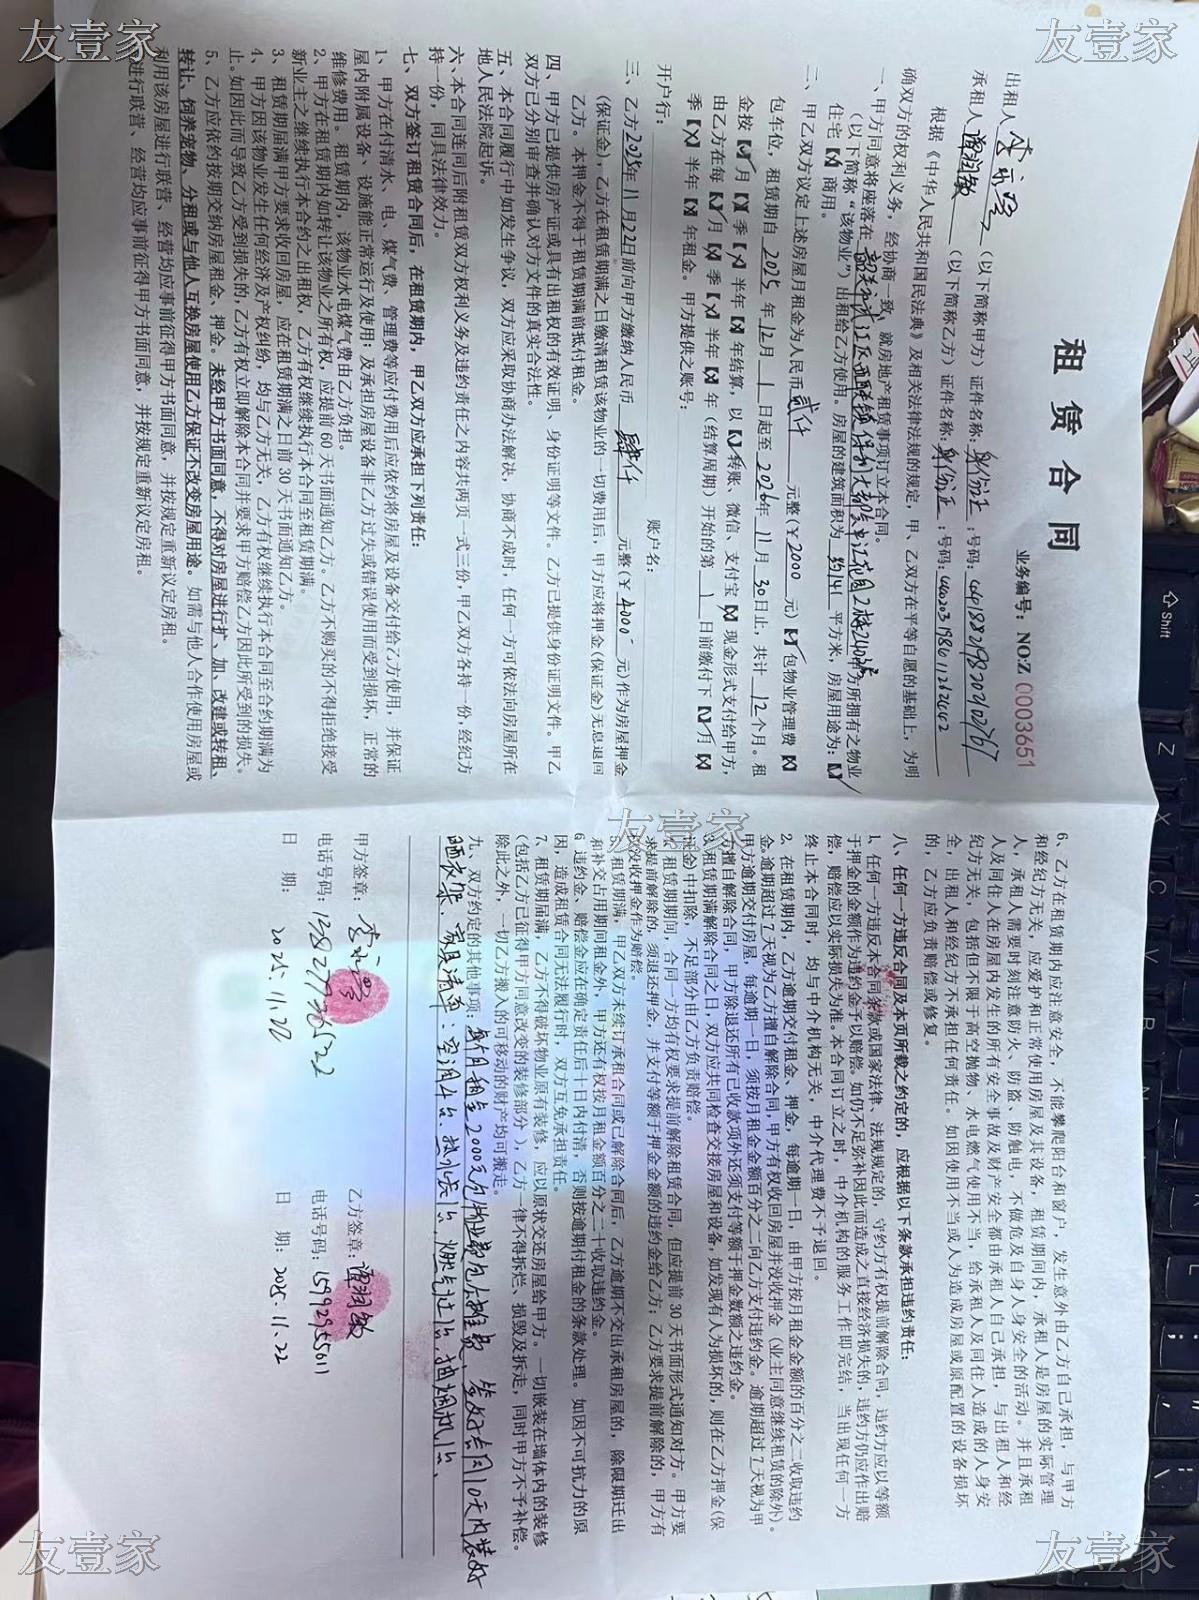 友壹家
友壹家
租赁合同
业务编号：NO:Z 0003651
出租人 （以下简称甲方）证件名称：身份证；号码：
承租人 谭润敏 （以下简称乙方）证件名称：身份证；号码：
根据《中华人民共和国民法典》及相关法律法规的规定，甲、乙双方在平等自愿的基础上，为明
确双方的权利义务，经协商一致，就房地产租赁事项订立本合同。
一、甲方同意将座落在 甲方所拥有之物业
（以下简称“该物业”）出租给乙方使用。房屋的建筑面积为 约141 平方米，房屋用途为：【√】
住宅【X】商用。
二、甲乙双方议定上述房屋月租金为人民币 贰仟 元整（￥2000 元）【√】包物业管理费【X】
包车位，租赁期自 2025 年 12 月 1 日起至 2026 年 11 月 30 日止，共计 12 个月。租
金按【√】月【X】季【X】半年【X】年结算，以【√】转账、微信、支付宝【X】现金形式支付给甲方，
由乙方在每【√】月【X】季【X】半年【X】年（结算周期）开始的第 1 日前缴付下【√】月【X】
季【X】半年【X】年租金。甲方提供之账号：
开户行： 账户名：
三、乙方 2025 年 11 月 22 日前向甲方缴纳人民币 肆仟 元整（￥4000 元）作为房屋押金
（保证金），乙方在租赁期满之日缴清租赁该物业的一切费用后，甲方应将押金（保证金）无息退回
乙方。本押金不得于租赁期满前抵付租金。
四、甲方已提供房产证或具有出租权的有效证明、身份证明等文件。乙方已提供身份证明文件。甲乙
双方已分别审查并确认对方文件的真实合法性。
五、本合同履行中如发生争议，双方应采取协商办法解决，协商不成时，任何一方可依法向房屋所在
地人民法院起诉。
六、本合同连同后附租赁双方权利义务及违约责任之内容共两页一式三份，甲乙双方各持一份，经纪方
持一份，同具法律效力。
七、双方签订租赁合同后，在租赁期内，甲乙双方应承担下列责任：
1、甲方在付清水、电、煤气费、管理费等应付费用后应依约将房屋及设备交付给乙方使用，并保证
屋内附属设备、设施能正常运行及使用；及承担房屋设备非乙方过失或错误使用而受到损坏，正常的
维修费用。租赁期内，该物业水电煤气费由乙方负担。
2、甲方在租赁期内如转让该物业之所有权，应提前 60 天书面通知乙方。乙方不购买的不得拒绝接受
新业主之继续执行本合约之出租权，乙方有权继续执行本合同至租赁期满。
3、租赁期届满甲方要求收回房屋，应在租赁期满之日前 30 天书面通知乙方。
4、甲方因该物业发生任何经济及产权纠纷，均与乙方无关，乙方有权继续执行本合同至合约期满为
止。如因此而导致乙方受到损失的，乙方有权立即解除本合同并要求甲方赔偿乙方因此所受到的损失。
5、乙方应依约按期交纳房屋租金，押金。未经甲方书面同意，不得对房屋进行扩、加、改建或转租、
转让、饲养宠物、分租或与他人互换房屋使用乙方保证不改变房屋用途。如需与他人合作使用房屋或
利用该房屋进行联营、经营均应事前征得甲方书面同意，并按规定重新议定房租。
进行联营、经营均应事前征得甲方书面同意，并按规定重新议定房租。
友壹家
6、乙方在租赁期内应注意安全，不能攀爬阳台和窗户，发生意外由乙方自己承担，与甲方
和经纪方无关，应爱护和正常使用房屋及其设备，租赁期间内，承租人是房屋的实际管理
人，承租人需要时刻注意防火、防盗、防触电，不做危及自身人身安全的活动。并且承租
人及同住人在房屋内发生的所有安全事故及财产安全都由承租人自己承担，与出租人和经
纪方无关，包括但不限于高空抛物、水电燃气使用不当，给承租人及同住人造成的人身安
全，出租人和经纪方不承担任何责任。如因使用不当或人为造成房屋或原配置的设备损坏
的，乙方应负责赔偿或修复。
八、任何一方违反合同及本页所载之约定的，应根据以下条款承担违约责任：
1、任何一方违反本合同条款或国家法律、法规规定的，守约方有权提前解除合同，违约方应以等额
于押金的金额作为违约金予以赔偿。如仍不足弥补因此而造成之直接经济损失的，违约方仍应作出赔
偿，赔偿应以实际损失为准。本合同订立之时，中介机构的服务工作即完结，当出现任何一方
终止本合同时，均与中介机构无关，中介代理费不予退回。
2、在租赁期内，乙方逾期交付租金、押金，每逾期一日，由甲方按月租金金额的百分之二收取违约
金。逾期超过 7 天视为乙方擅自解除合同，甲方有权收回房屋并没收押金（业主同意继续租赁的除外）。
甲方逾期交付房屋，每逾期一日，须按月租金金额百分之二向乙方支付违约金。逾期超过 7 天视为甲
方擅自解除合同，甲方除退还所有已收款项外还须支付等额于押金数额之违约金。
3、租赁期满解除合同之日，双方应共同检查交接房屋和设备，如发现有人为损坏的，则在乙方押金（保
证金）中扣除，不足部分由乙方负责赔偿。
4、租赁期期间，合同一方均有权要求提前解除租赁合同，但应提前 30 天书面形式通知对方。甲方要
求提前解除的，须退还押金，并支付等额于押金金额的违约金给乙方；乙方要求提前解除的，甲方有
权没收押金作为赔偿。
5、租赁期满，甲乙双方未续订承租合同或已解除合同后，乙方逾期不交出承租房屋的，除限期迁出
和补交占用期间租金外，甲方还有权按月租金额百分之二十收取违约金。
6、违约金、赔偿金应在确定责任后十日内付清，否则按逾期付租金的条款处理。如因不可抗力的原
因，造成租赁合同无法履行时，双方互免承担责任。
7、租赁期届满，乙方不得破坏物业原有装修，应以原状交还房屋给甲方。一切嵌装在墙体内的装修
（包括乙方已征得甲方同意改变的装修部分），乙方一律不得拆烂、损毁及拆走，同时甲方不予补偿。
除此之外，一切乙方搬入的可移动的财产均可搬走。
九、双方约定的其他事项：每个月租金2000元包物业费包摊费，签好合同10天内装好
晒衣架，家具清单：
甲方签章： 乙方签章：谭润敏
电话号码：13827736522 电话号码：15992955011
日 期：2025.11.22 日 期：2025.11.22
友壹家
友壹家